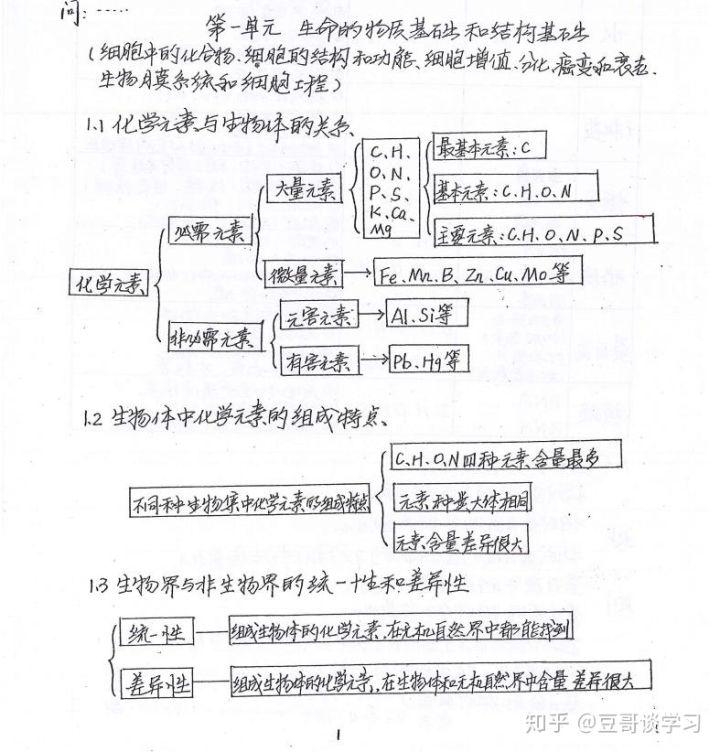 问: ……
第一单元 生命的物质基础和结构基础
(细胞中的化合物、细胞的结构和功能、细胞增值、分化、癌变和衰老、
生物膜系统和细胞工程)
1.1 化学元素与生物体的关系、
化学元素
必需元素
大量元素
C、H、
O、N、
P、S、
K、Ca、
Mg
最基本元素:C
基本元素:C、H、O、N
主要元素:C、H、O、N、P、S
微量元素
Fe、Mn、B、Zn、Cu、Mo等
非必需元素
无害元素
Al、Si等
有害元素
Pb、Hg等
1.2 生物体中化学元素的组成特点、
不同种生物体中化学元素的组成特点
C、H、O、N四种元素含量最多
元素种类大体相同
元素含量差异很大
1.3 生物界与非生物界的统一性和差异性
统一性
组成生物体的化学元素,在无机自然界中都能找到
差异性
组成生物体的化学元素,在生物体和无机自然界中含量差异很大
1
知乎 @豆哥谈学习